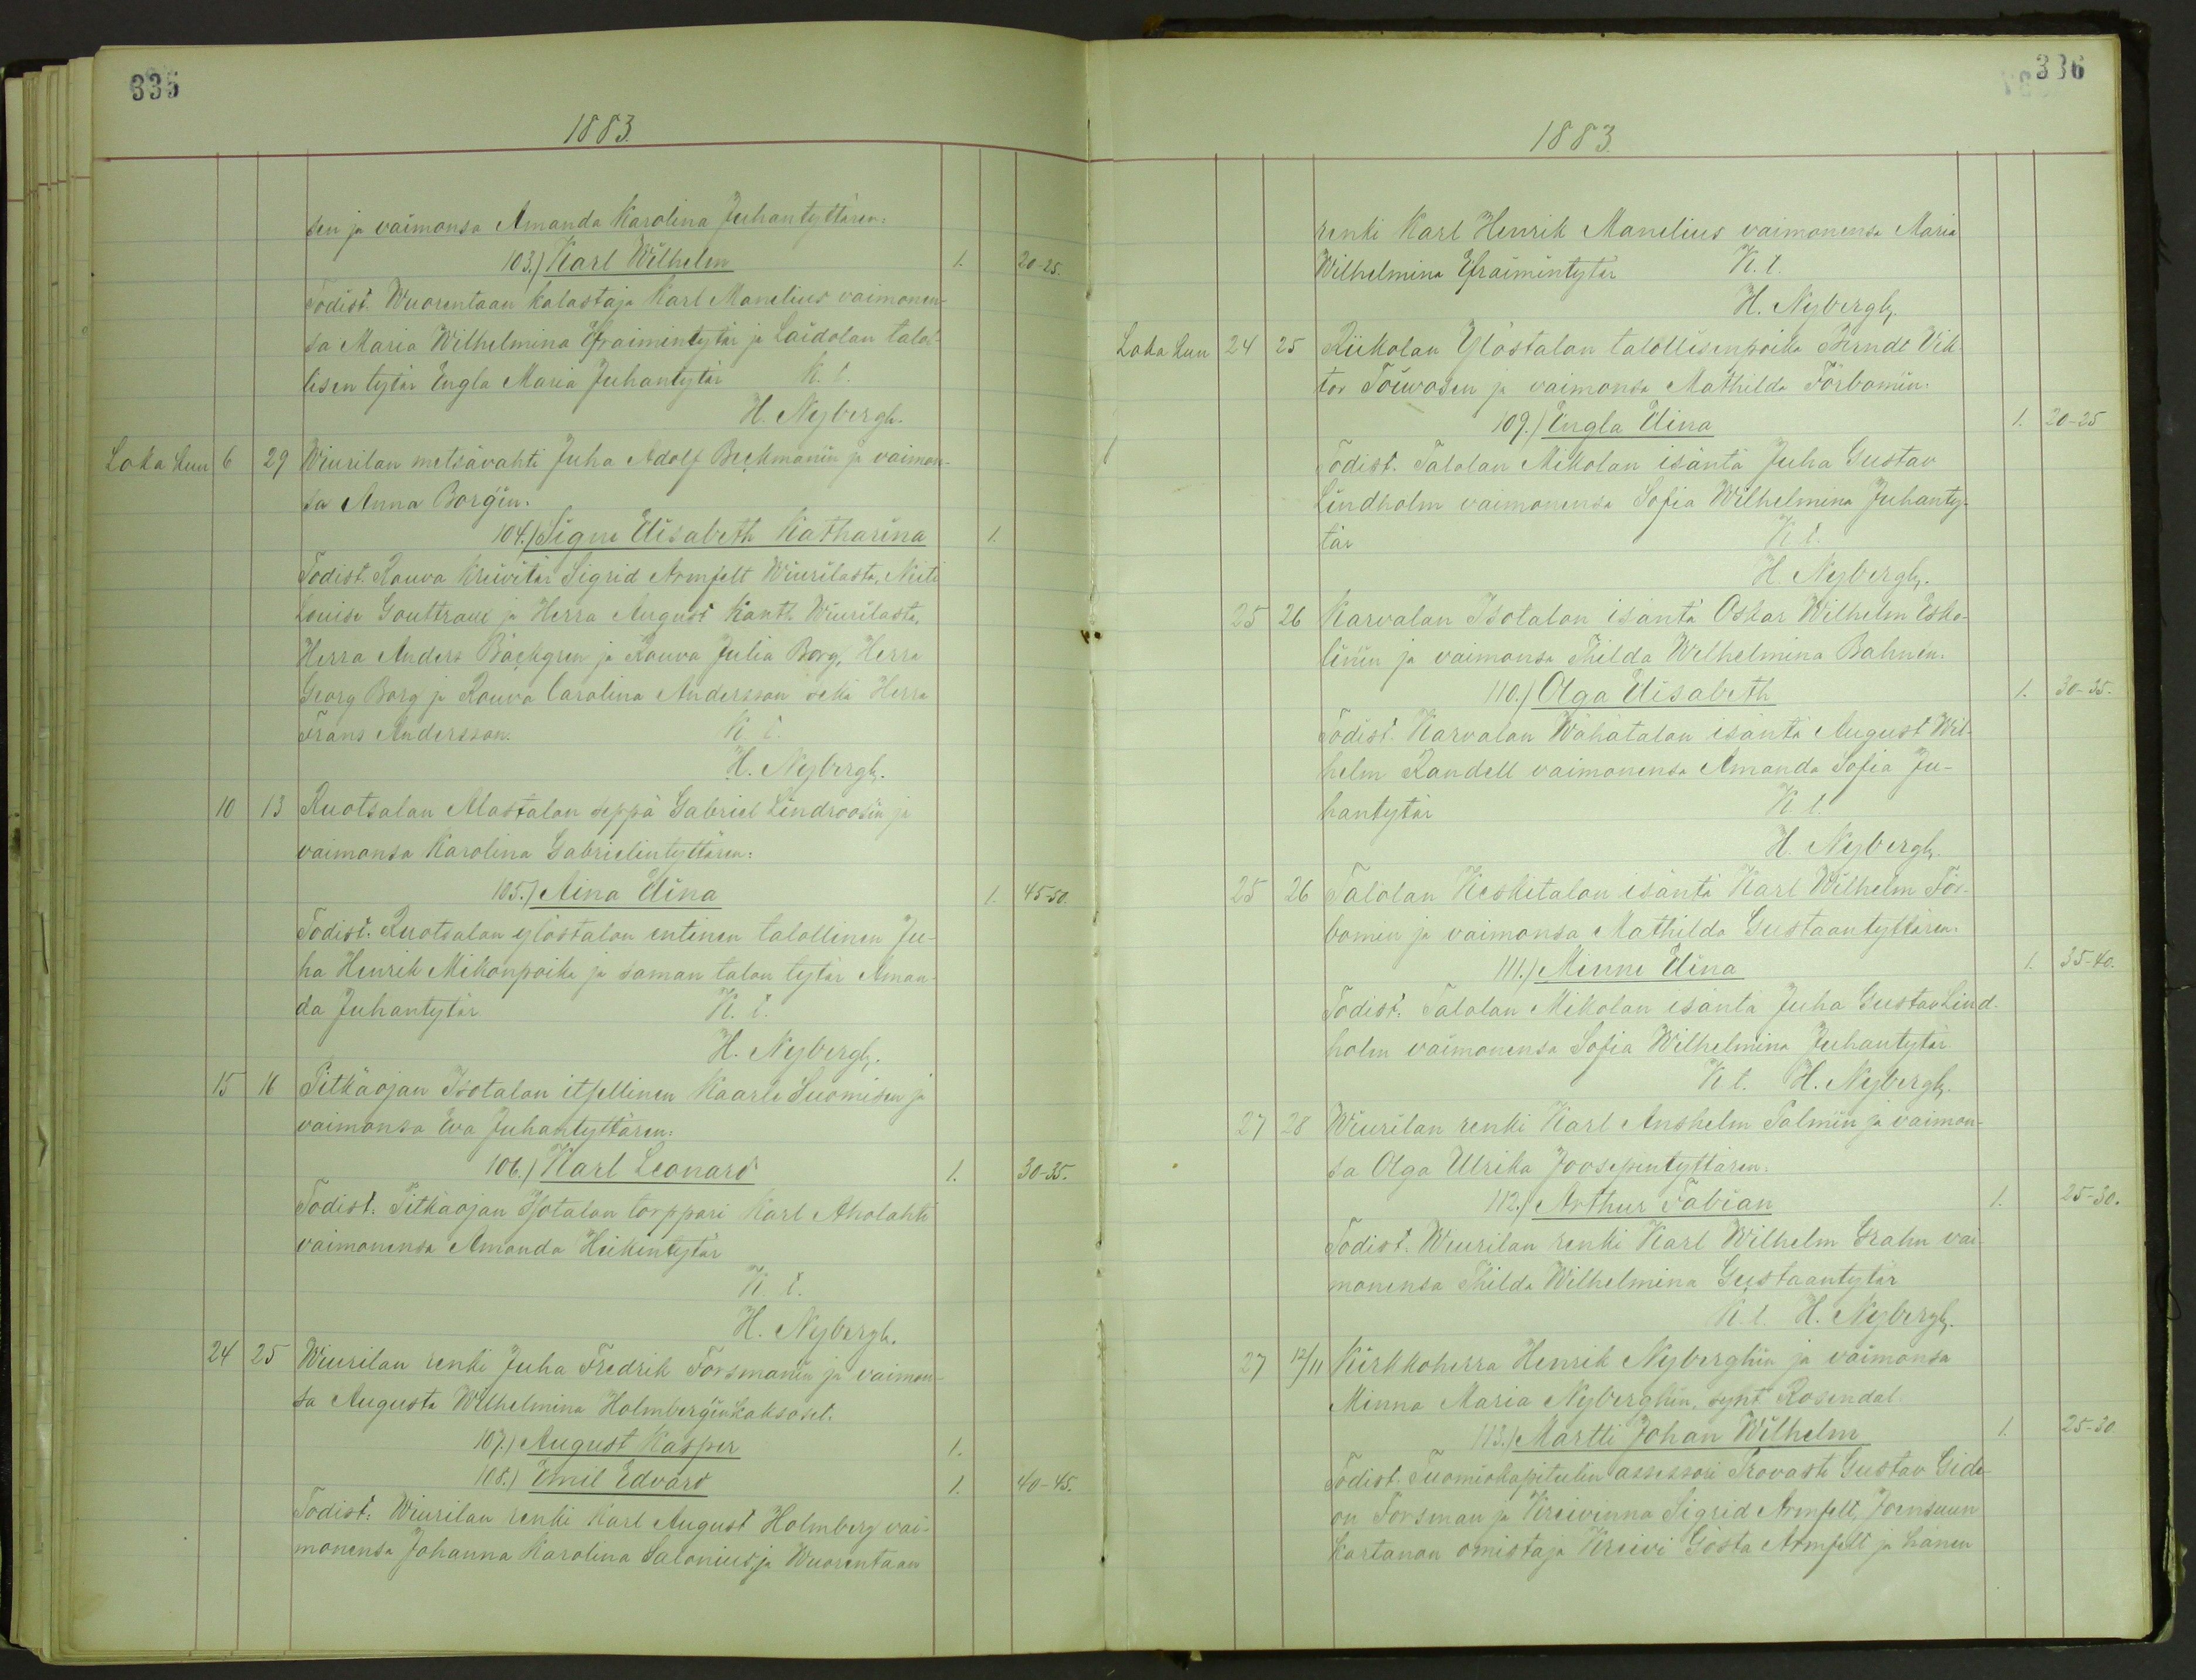 335
1883.
sen ja vaimonsa Amanda Karolina Juhantyttären:
103.) Karl Wilhelm 1. 20-25.
Todist. Wuorentaan kalastaja Karl Manelius vaimonen-
sa Maria Wilhelmina Efraimintytär ja Laidolan talol-
lisen tytär Engla Maria Juhantytär K. t.
H. Nybergh.
Loka kuu 6 29 Wiurilan metsävahti Juha Adolf Beckmanin ja vaimon-
sa Anna Borgin:
104.) Signe Elisabeth Katharina 1.
Todist. Rouva Kreivitär Sigrid Armfelt Wiurilasta, Neiti
Louise Gouttraux ja Herra August Kanth Wiurilasta,
Herra Anders Bäckgren ja Rouva Julia Borg, Herra
Georg Borg ja Rouva Carolina Andersson sekä Herra
Frans Andersson. K. t.
H. Nybergh.
10 13 Ruotsalan Alastalon seppä Gabriel Lindroosin ja
vaimonsa Karolina Gabrielintyttären:
105.) Aina Elina 1. 45-50.
Todist. Ruotsalan ylöstalon entinen talollinen Ju-
ha Henrik Mikonpoika ja saman talon tytär Aman-
da Juhantytär K. t.
H. Nybergh.
15 16 Pitkäojan Isotalon itsellinen Kaarle Suomisen ja
vaimonsa Eva Juhantyttären:
106.) Karl Leonard 1. 30-35.
Todist. Pitkäojan Isotalon torppari Karl Aholahti
vaimonensa Amanda Heikintytär
K. t.
H. Nybergh.
24 25 Wiurilan renki Juha Fredrik Forsmanin ja vaimon-
sa Augusta Wilhelmina Holmbergin kaksoset.
107.) August Kasper 1.
108.) Emil Edvard 1. 40-45.
Todist: Wiurilan renki Karl August Holmberg vai-
monensa Johanna Karolina Salonius, ja Wuorentaan
336
1883.
renki Karl Henrik Manelius vaimonensa Maria
Wilhelmina Efraimintytär K. t.
H. Nybergh.
Loka kuu 24 25 Riikolan Ylöstalon talollisenpoika Berndt Vik-
tor Toiwosen ja vaimonsa Mathilda Törbomin:
109.) Engla Elina 1. 20-25
Todist. Talolan Mikolan isäntä Juha Gustav
Lindholm vaimonensa Sofia Wilhelmina Juhanty-
tär K. t.
H. Nybergh.
25 26 Karvalan Isotalon isäntä Oskar Wilhelm Esko-
linin ja vaimonsa Thilda Wilhelmina Bahnen:
110.) Olga Elisabeth 1. 30-35.
Todist. Karvalan Wähätalon isäntä August Wil-
helm Randell vaimonensa Amanda Sofia Ju-
hantytär K. t.
H. Nybergh.
25 26 Talolan Keskitalon isäntä Karl Wilhelm Tör-
bomin ja vaimonsa Mathilda Gustaantyttären:
111.) Minni Elina 1. 35-40.
Todist. Talolan Mikolan isäntä Juha Gustav Lind-
holm vaimonensa Sofia Wilhelmina Juhantytär
K. t. H. Nybergh.
27 28 Wiurilan renki Karl Anshelm Palmin ja vaimon-
sa Olga Ulrika Joosepintyttären:
112.) Arthur Fabian 1. 25-30.
Todist. Wiurilan renki Karl Wilhelm Grahn vai-
monensa Thilda Wilhelmina Gustaantytär
K. t. H. Nybergh.
27 12/11 Kirkkoherra Henrik Nyberghin ja vaimonsa
Minna Maria Nyberghin, synt Rosendal
113.) Martti Johan Wilhelm 1. 25-30
Todist. Tuomiokapitulin assessori Provasti Gustav Gide-
on Forsman ja Kreivinna Sigrid Armfelt, Joensuun
kartanon omistaja Kreivi Gösta Armfelt ja hänen